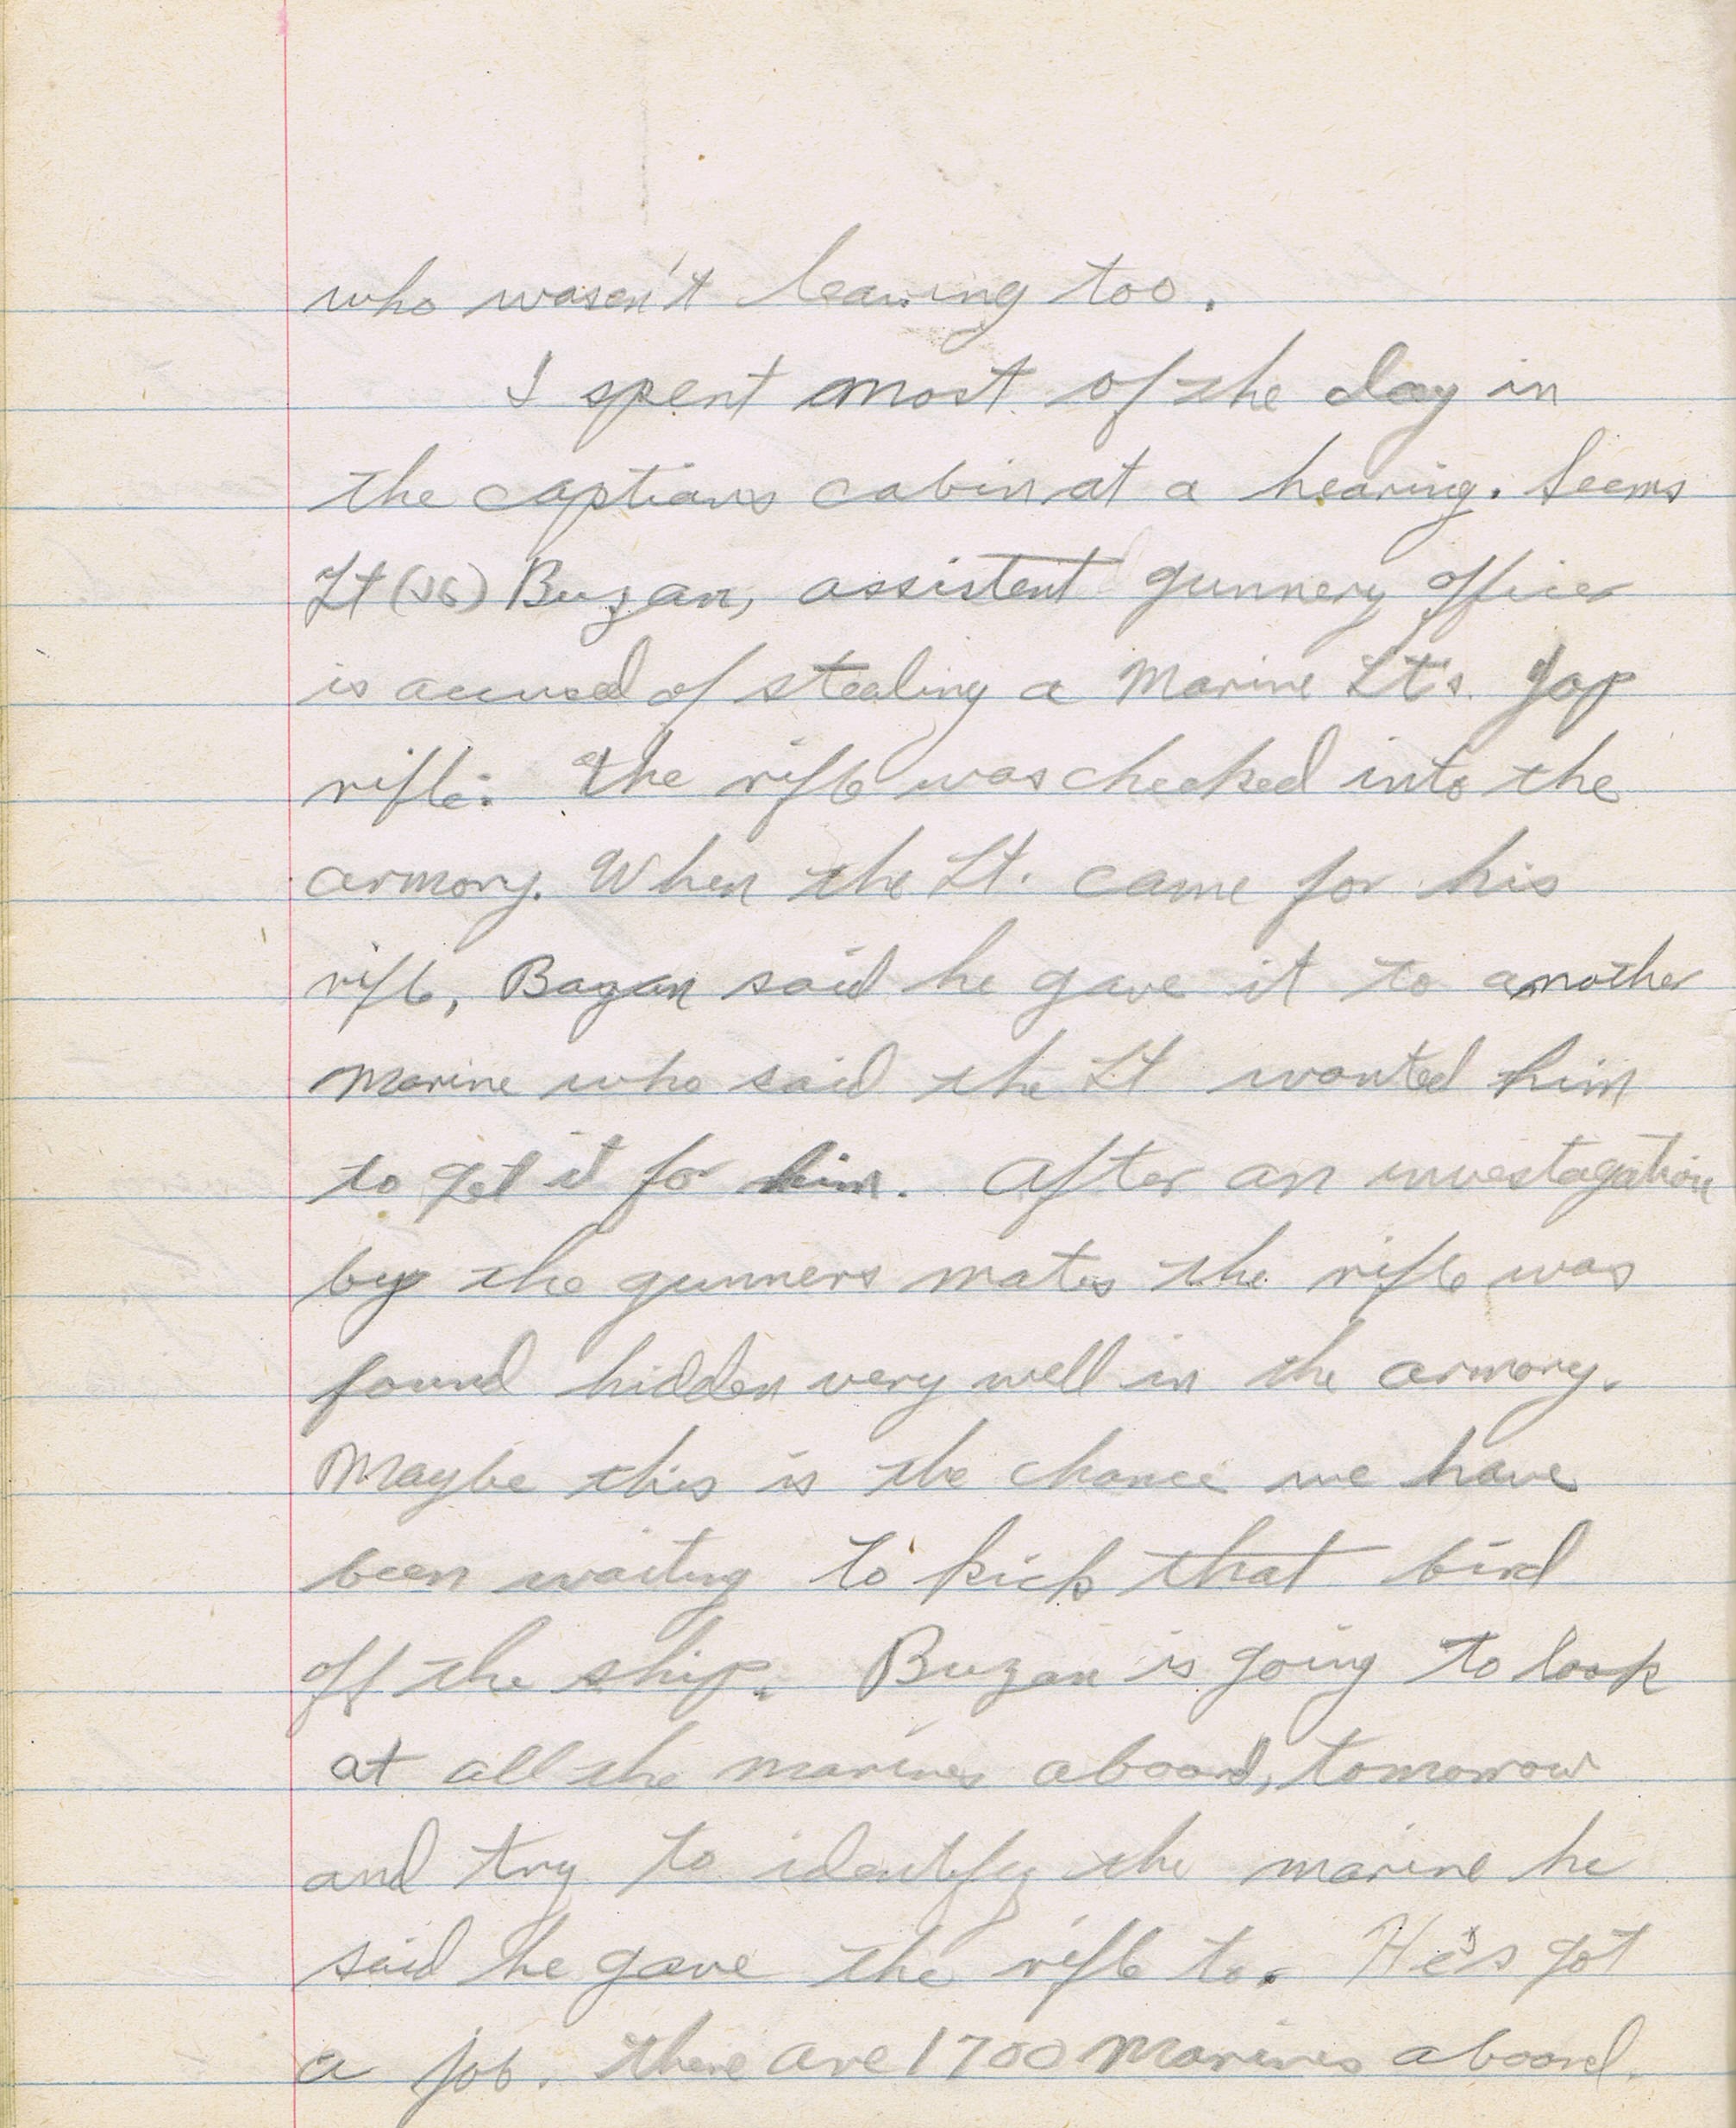 who wasen't leaving too.
I spent most of the day in
the captians cabin at a hearing. Seems
Lt (JG) Buzan, assistent gunnery officer
is accused of stealing a Marine Lt's. Jap
rifle. The rifle was checked into the
armory. When the Lt. came for his
rifle, Bazan said he gave it to another
marine who said the Lt wanted him
to get it for him. After an investagation
by the gunners mates the rifle was
found hidden very well in the armory.
Maybe this is the chance we have
been waiting to kick that bird
off the ship. Buzan is going to look
at all the marines aboard, tomorrow
and try to identify the marine he
said he gave the rifle to. He's got
a job. There are 1700 Marines aboard.